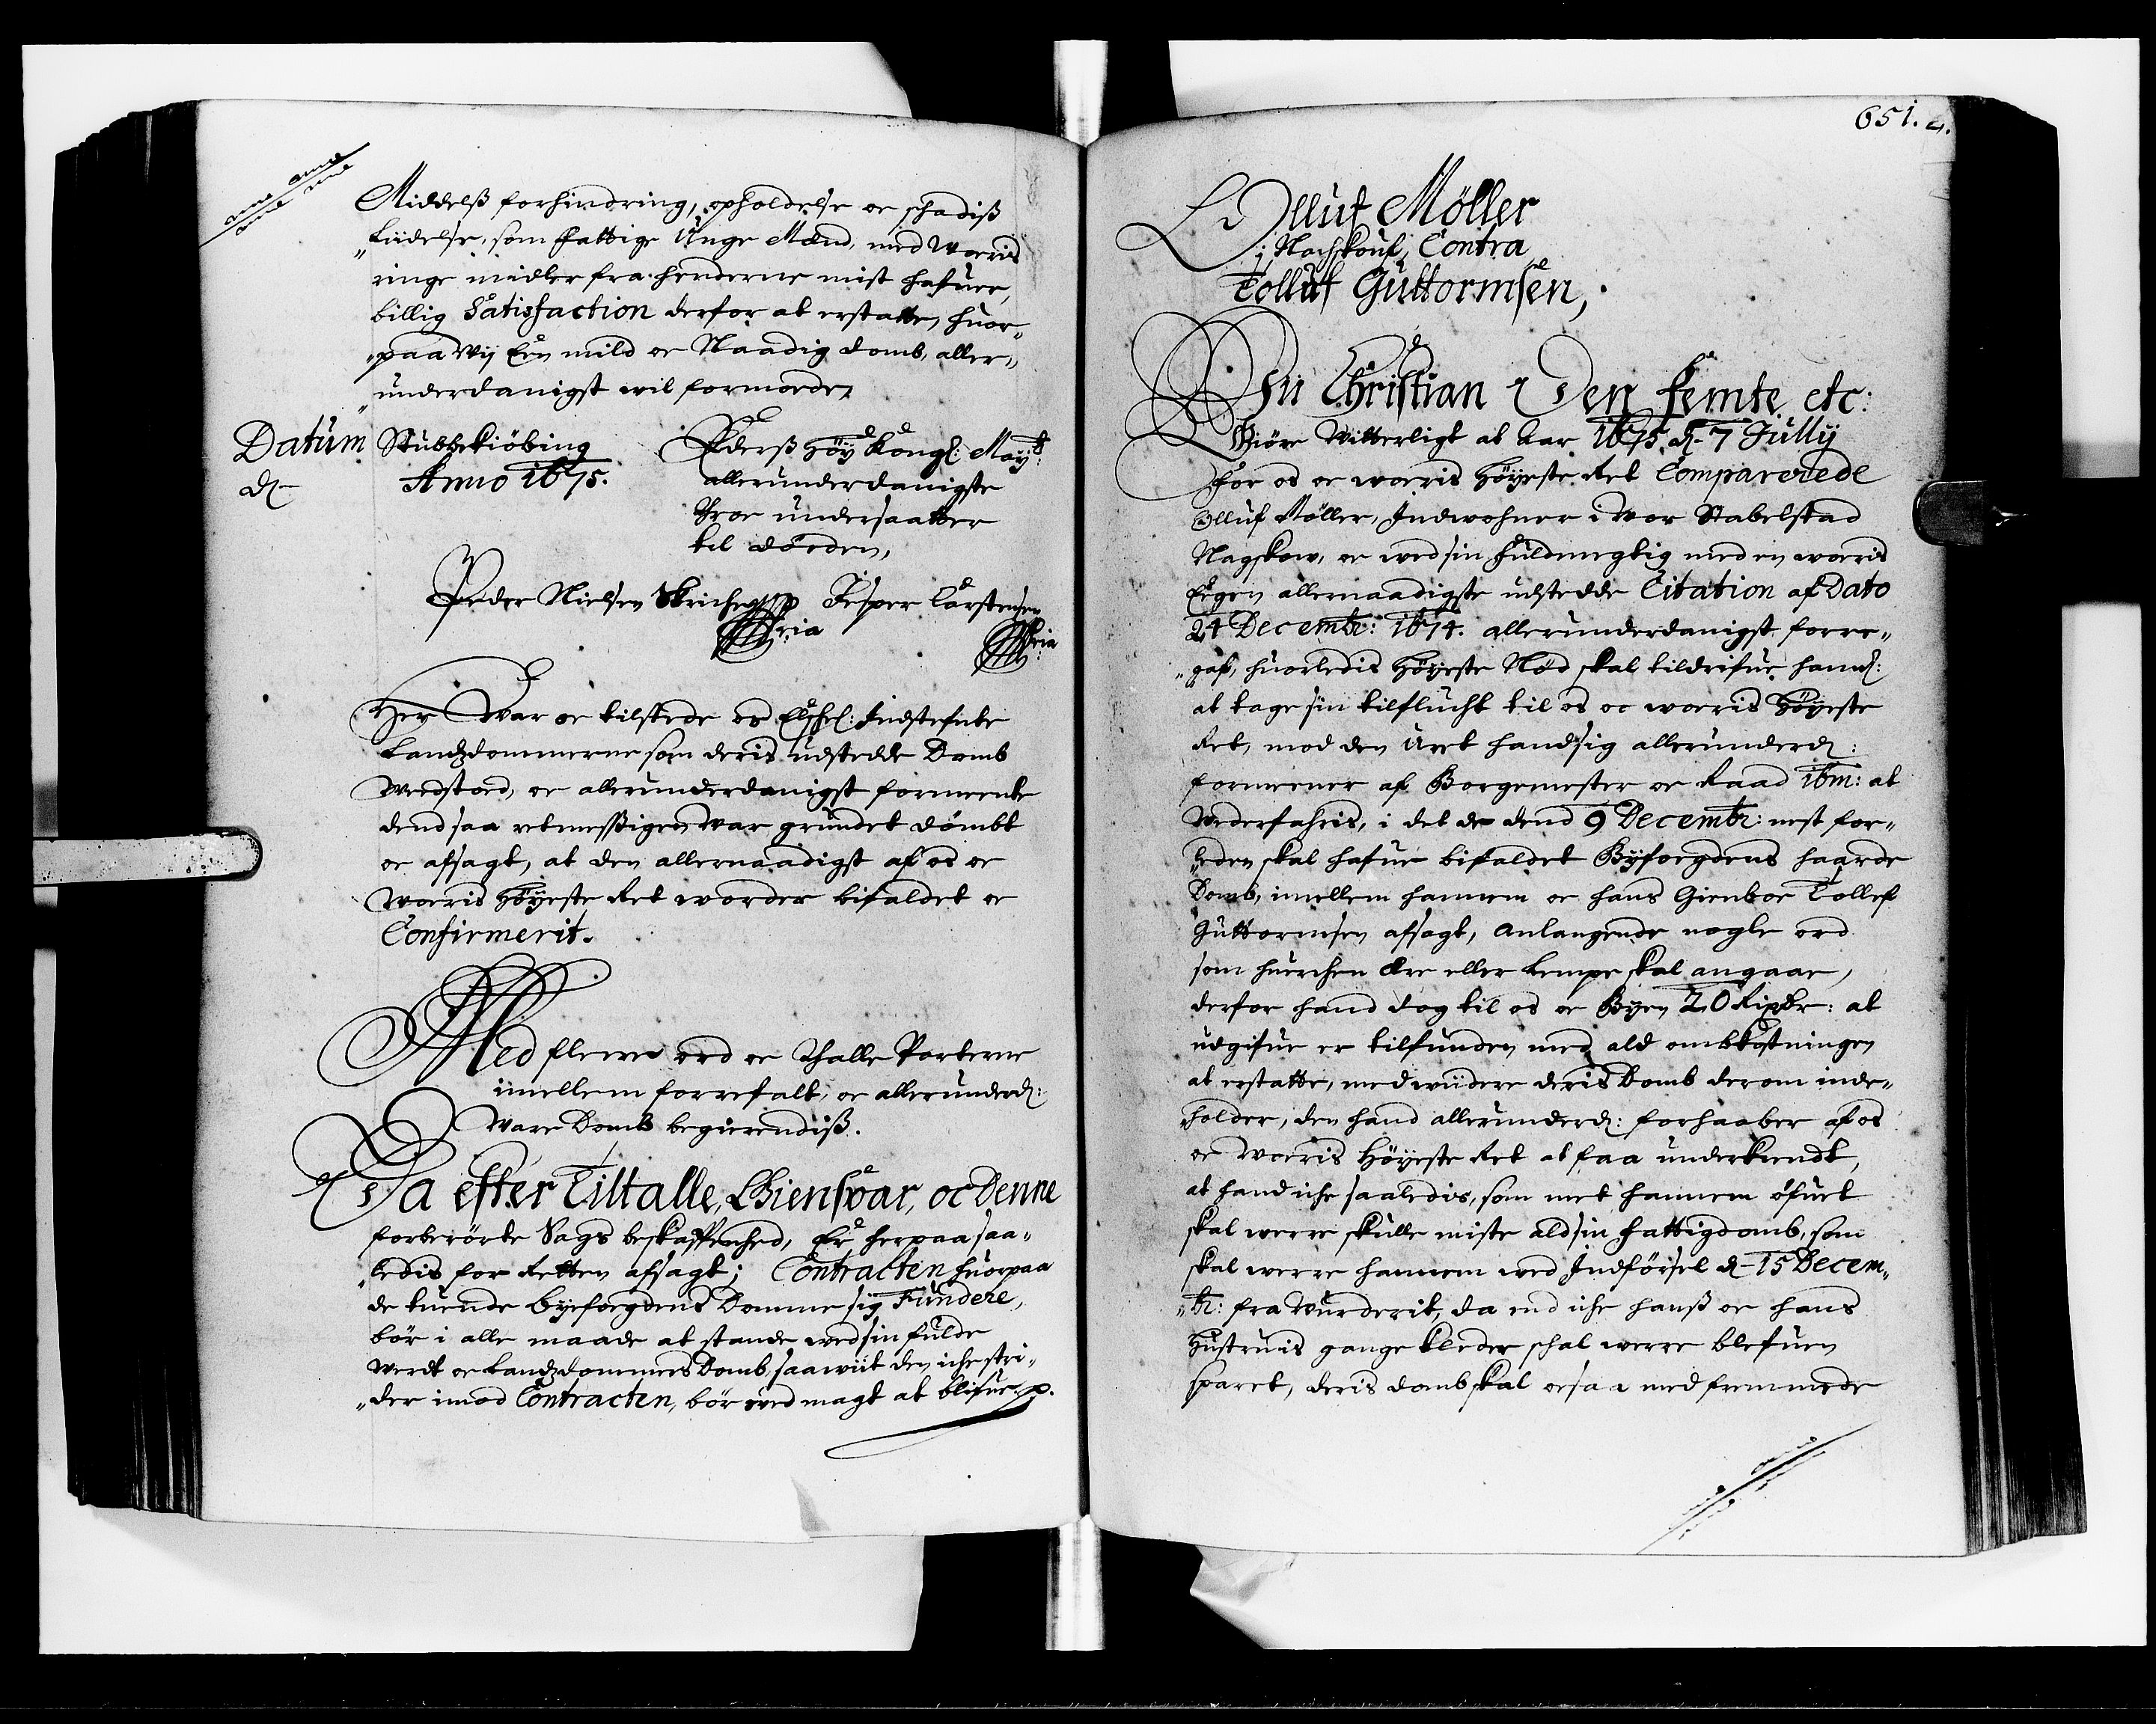 Middelß forhindring, opholdelse oc schadiß
„Liidelse, som fattige Unge Mænd, med Woris
ringe midler fra henderne mist hafuer,
billig Satisfaction derfor at erstatte, huor„
„paa Wij Een mild oc Naadig domb, aller„
„underdanigst wil formoede,
Datum Stubbekiöbing
d.
Anno 1675.
Eders Höy Kongl: May:tt
allerunderdanigste
Troe undersaatter
til döeden,
Peder Nielsen Jesper Carstensen
Her War oc tilstede os Elschel: Indstefnte
Landzdommerne som deris udstedde Domb
Wedstoed, oc allerunderdanigst formeente
dend saa retmessigen War grundet dömbt
oc afsagt, at den allernaadigst af os oc
Woris Höyeste Ret worder bifaldet oc
Confirmerit.
Med flerre ord oc Thalle Parterne
imellem forrefalt, oc allerunderd:
Wore Domb begierendiß.
Da efter Tiltalle, Giensvar, oc Denne
forberörte Sags beskaffenhed, Er herpaa saa„
„ledis for Retten afsagt; Contracten huorpaa
de tuende byefogdens Domme sig Fundere,
bör i alle maade at stande wed sin fulde
Werdt oc Landzdommers Domb, saawiit den iche stri„
„der imod Contracten, bör wed magt at blifue. p.
651. 2.
Olluf Möller
i Nachskouf, Contra
Tolluf Guttormsen,
Wii Christian Den femte etc:
Giöre Witterligt at Aar 1675. d. 7 Jully
for os oc woris Höyeste Ret Comparerede
Olluf Möller, Indwohner i Wor Stabelstad
Nagskow, oc wed sin fuldmegtig med en woris
Egen allernaadigste udstedde Citation af Dato
24 Decembr: 1674. allerunderdanigst forre„
„gaf, huorledis Höyeste Nöd skal tildrifue hannem:
at tage sin tilflucht til os oc woris Höyeste
Ret, mod den Uret hand sig allerunderd:
formeener af Borgemester oc Raad ibm: at
Wederfahris, i det de dend 9 Decembr: nest for„
„leden skal hafue bifaldet Byfoegdens haarde
Domb, imellem hannem oc hans Gienboe Tollef
Guttormsen afsagt, Anlangende nogle ord
som huerchen ære eller Lempe skal angaae,
derfor hand dog til os oc Byen 20 Rixdr: at
udgifue er tilfunden med ald ombkostningen
at erstatte, med widere deris Domb derom inde„
„holder, den hand allerunderd: forhaaber af os
oc Woris Höyeste Ret at faa underkiendt,
at hand iche saaledis, som met hannem öfuet
skal were skulle miste ald sin fattigdomb, som
skal were hannem wed Indförsel d. 15 Decem„
„br: fra Wurderit, da end iche hanß oc hans
Hustruis gange kleder schal were blefuen
sparet, deris domb skal ocsaa med fremmede